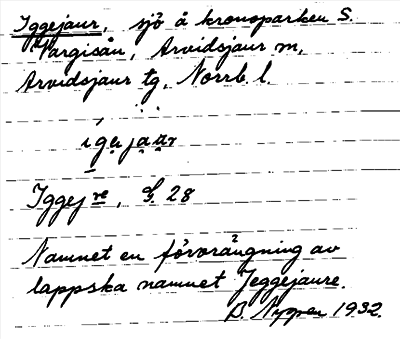 Iggejaur, sjö å kronoparken S.
Vargisån, Arvidsjaur m,
Arvidsjaur tg, Norrb. l.
igejaur
Iggej re, S. 28
Namnet en förvrängning av
lappska namnet Jeggejaure.
B. Nyman 1932.